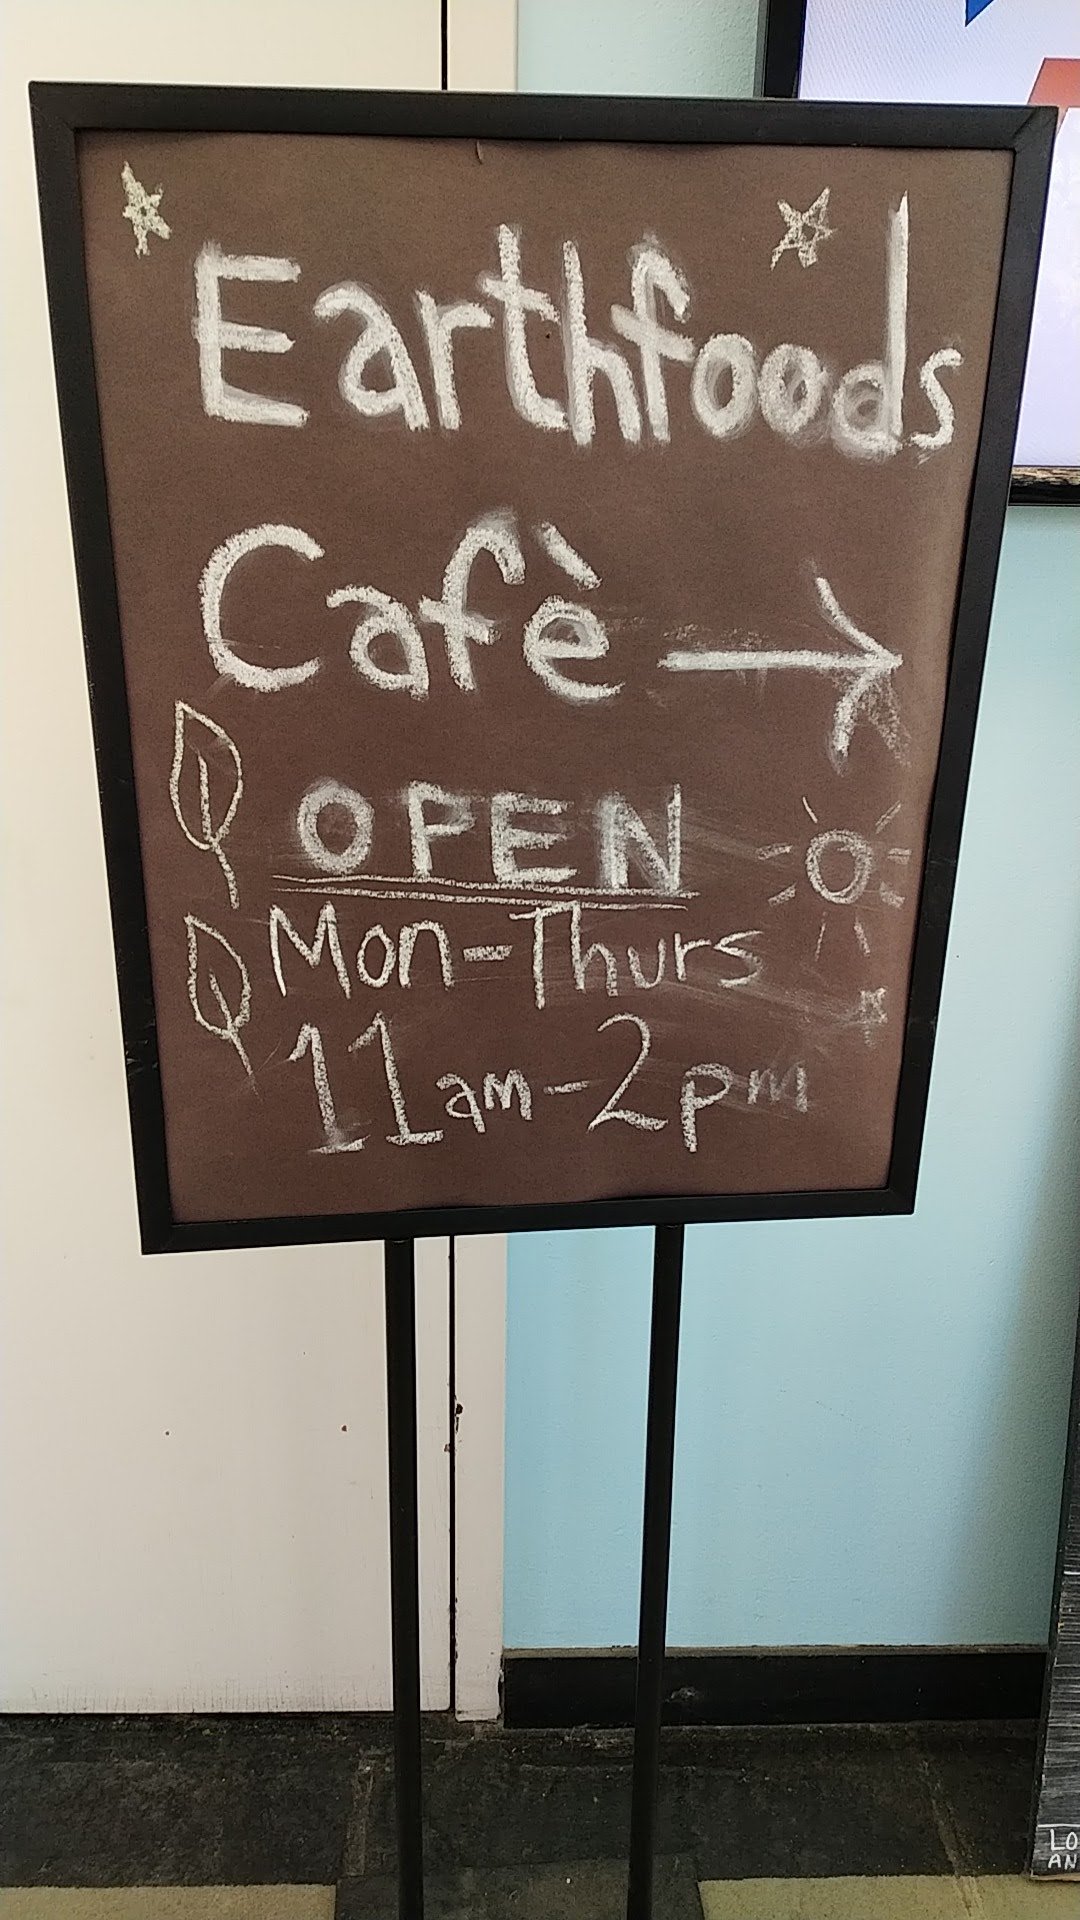 Earthfoods
Cafè →
OPEN
Mon-Thurs
11am-2pm
LO
AN